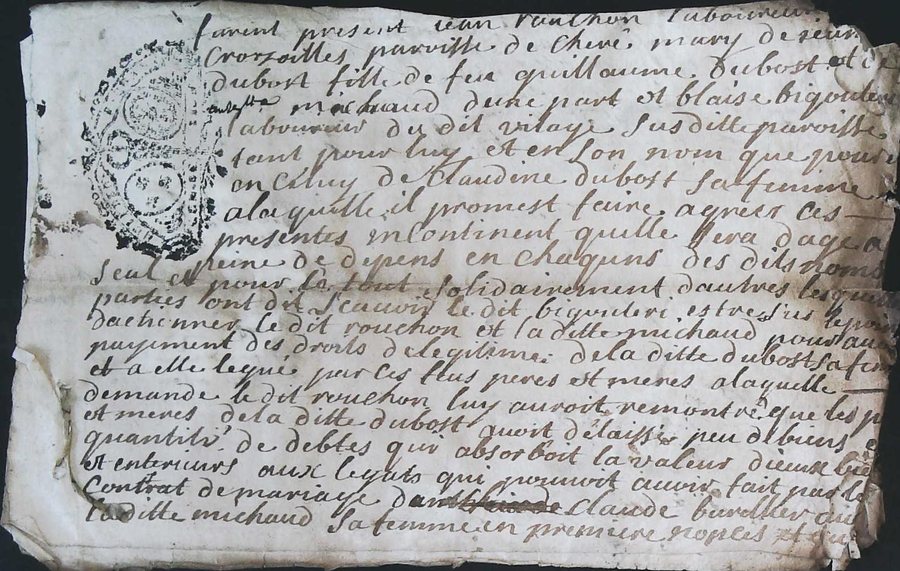 furent present jean rauchon laboureur
Croizilles paroisse de cheré mary de jean
Dubost fille de feu guillaume Dubost et de
michaud dune part et blaise bigouleri
laboureur du dit vilage susditte paroisse
tant pour luy et en son nom que pour
en celuy de Claudine dubost sa femme
alaquelle il promest faire agreer ces
presentes incontinent quelle sera dage a
peine de depens en chaquns des dits noms
seul et pour le tout solidairement dautres lesquelles
parties ont dit scauoir le dit bigouleri estre sus le poin
dactionner le dit rouchon et la ditte michaud pour auoir
payement des droits de legitime de la ditte dubost sa fem
et a elle legué par ces feus peres et meres alaquelle
demande le dit rouchon luy auroit remontré que les p
et meres de la ditte dubost auoit délaissé peu de biens et
quantité de debtes qui absorboit la valeur diceux bie
et enterieurs aux legats qui pouuoit auoir fait par le
Contrat de mariage Claude
la ditte michaud sa femme en premiere nopces